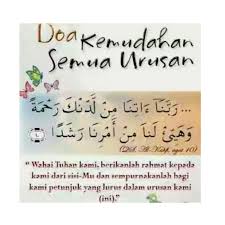 Doa Kemudahan
Semua Urusan
... رَبَّنَآ ءَاتِنَا مِن لَّدُنكَ رَحْمَةً
وَهَيِّئْ لَنَا مِنْ أَمْرِنَا رَشَدًا ١٠
(QS. Al-Kahfi, ayat 10)
" Wahai Tuhan kami, berikanlah rahmat kepada
kami dari sisi-Mu dan sempurnakanlah bagi
kami petunjuk yang lurus dalam urusan kami
(ini)."